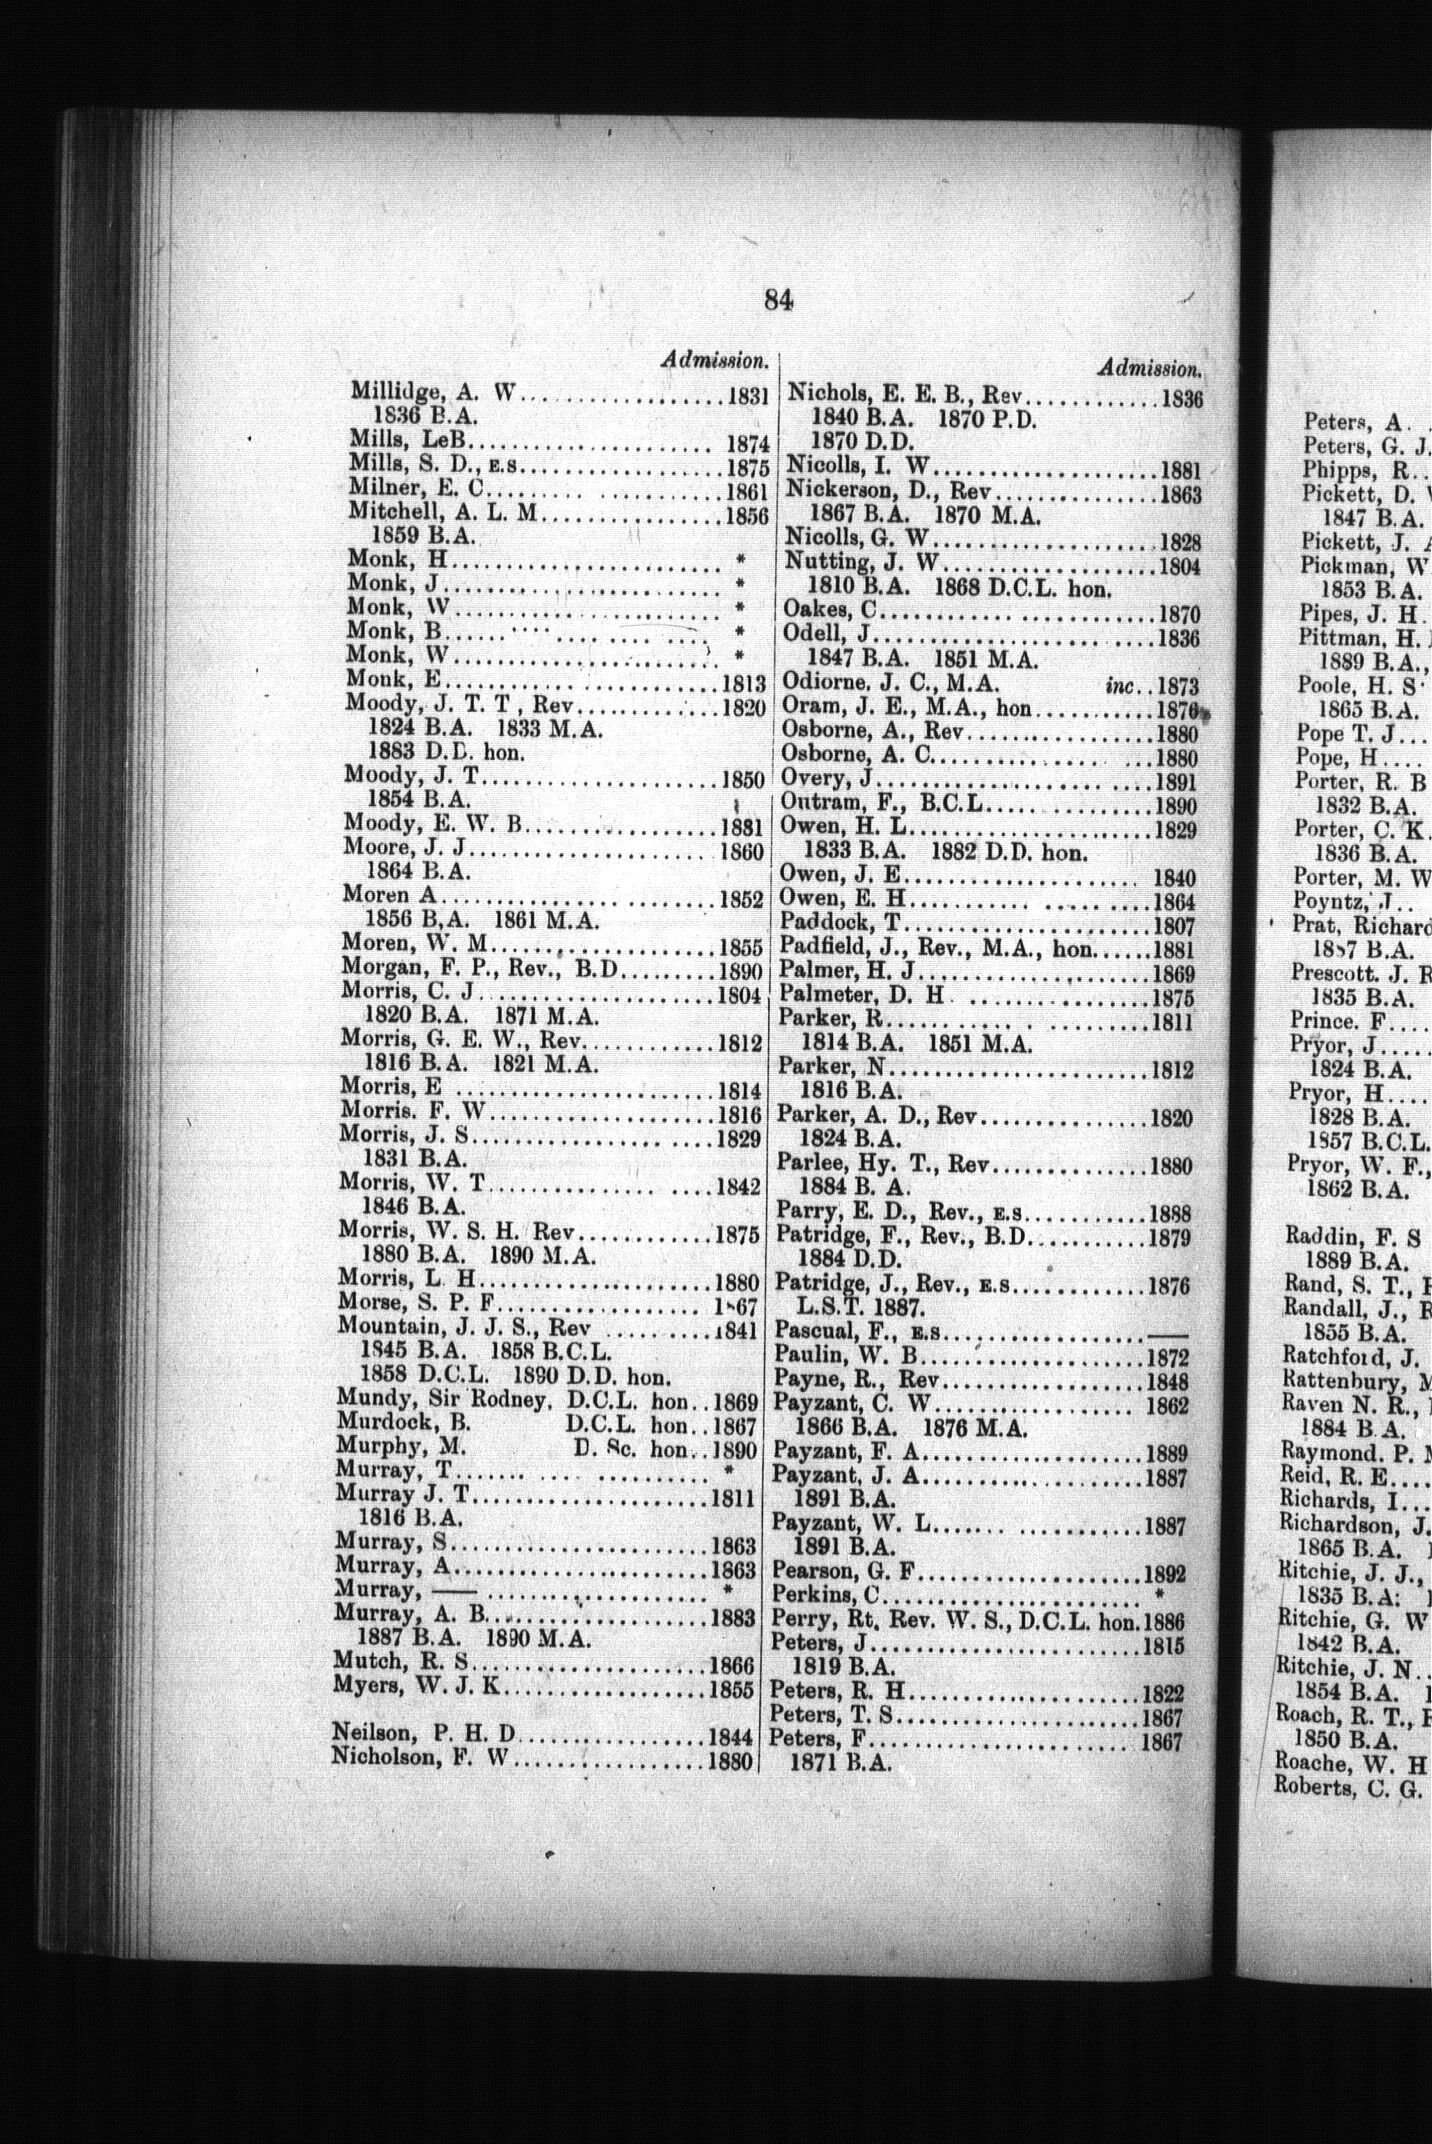 84
Admission.
Millidge, A. W..................1831
1836 B.A.
Mills, LeB.................... 1874
Mills, S. D., E.S..................1875
Milner, E. C..................1861
Mitchell, A. L. M..............1856
1859 B.A.
Monk, H...................... *
Monk, J...................... *
Monk, W...................... *
Monk, B...................... *
Monk, W...................... *
Monk, E......................1813
Moody, J. T. T , Rev............1820
1824 B.A. 1833 M.A.
1883 D.D. hon.
Moody, J. T....................1850
1854 B.A.
Moody, E. W. B................1881
Moore, J. J.................... 1860
1864 B.A.
Moren A......................1852
1856 B.A. 1861 M.A.
Moren, W. M..................1855
Morgan, F. P., Rev., B.D.........1890
Morris, C. J....................1804
1820 B.A. 1871 M.A.
Morris, G. E. W., Rev............1812
1816 B.A. 1821 M.A.
Morris, E ......................1814
Morris. F. W...................1816
Morris, J. S....................1829
1831 B.A.
Morris, W. T...................1842
1846 B.A.
Morris, W. S. H. Rev............1875
1880 B.A. 1890 M.A.
Morris, L. H....................1880
Morse, S. P. F.................. 1867
Mountain, J. J. S., Rev ..........1841
1845 B.A. 1858 B.C.L.
1858 D.C.L. 1890 D.D. hon.
Mundy, Sir Rodney, D.C.L. hon..1869
Murdock, B. D.C.L. hon..1867
Murphy, M. D. Sc. hon..1890
Murray, T...................... *
Murray J. T....................1811
1816 B.A.
Murray, S......................1863
Murray, A......................1863
Murray, —— .................... *
Murray, A. B....................1883
1887 B.A. 1890 M.A.
Mutch, R. S....................1866
Myers, W. J. K..................1855
Neilson, P. H. D................1844
Nicholson, F. W................1880
Admission.
Nichols, E. E. B., Rev............1836
1840 B.A. 1870 P.D.
1870 D.D.
Nicolls, I. W....................1881
Nickerson, D., Rev..............1863
1867 B.A. 1870 M.A.
Nicolls, G. W....................1828
Nutting, J. W....................1804
1810 B.A. 1868 D.C.L. hon.
Oakes, C........................1870
Odell, J........................1836
1847 B.A. 1851 M.A.
Odiorne. J. C., M.A. inc..1873
Oram, J. E., M.A., hon...........1876
Osborne, A., Rev................1880
Osborne, A. C....................1880
Overy, J........................1891
Outram, F., B.C.L..............1890
Owen, H. L......................1829
1833 B.A. 1882 D.D. hon.
Owen, J. E...................... 1840
Owen, E. H......................1864
Paddock, T......................1807
Padfield, J., Rev., M.A., hon......1881
Palmer, H. J....................1869
Palmeter, D. H..................1875
Parker, R......................1811
1814 B.A. 1851 M.A.
Parker, N......................1812
1816 B.A.
Parker, A. D., Rev..............1820
1824 B.A.
Parlee, Hy. T., Rev..............1880
1884 B. A.
Parry, E. D., Rev., E.S...........1888
Patridge, F., Rev., B.D...........1879
1884 D.D.
Patridge, J., Rev., E.S............1876
L.S.T. 1887.
Pascual, F., E.S..................——
Paulin, W. B....................1872
Payne, R., Rev..................1848
Payzant, C. W.................. 1862
1866 B.A. 1876 M.A.
Payzant, F. A....................1889
Payzant, J. A....................1887
1891 B.A.
Payzant, W. L....................1887
1891 B.A.
Pearson, G. F....................1892
Perkins, C...................... *
Perry, Rt. Rev. W. S., D.C.L. hon.1886
Peters, J........................1815
1819 B.A.
Peters, R. H....................1822
Peters, T. S....................1867
Peters, F...................... 1867
1871 B.A.
Peters, A. .
Peters, G. J.
Phipps, R..
Pickett, D.
1847 B.A.
Pickett, J.
Pickman, W
1853 B.A.
Pipes, J. H.
Pittman, H.
1889 B.A.,
Poole, H. S
1865 B.A.
Pope T. J...
Pope, H....
Porter, R. B
1832 B.A.
Porter, C. K.
1836 B.A.
Porter, M. W
Poyntz, J..
Prat, Richard
1887 B.A.
Prescott. J. R
1835 B.A.
Prince. F....
Pryor, J.....
1824 B.A.
Pryor, H....
1828 B.A.
1857 B.C.L.
Pryor, W. F.,
1862 B.A.
Raddin, F. S
1889 B.A.
Rand, S. T.,
Randall, J., R
1855 B.A.
Ratchford, J.
Rattenbury,
Raven N. R.,
1884 B.A.
Raymond. P.
Reid, R. E....
Richards, I...
Richardson, J.
1865 B.A.
Ritchie, J. J.,
1835 B.A.
Ritchie, G. W
1842 B.A.
Ritchie, J. N..
1854 B.A.
Roach, R. T.,
1850 B.A.
Roache, W. H
Roberts, C. G.